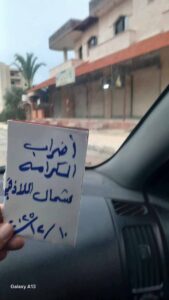 أضراب
الكرامه
شمال اللاذقية
٢٠٢٥/١٢/١٠
Galaxy A13